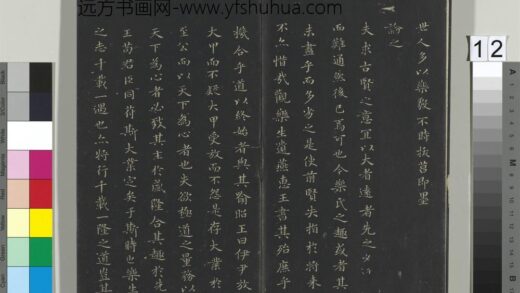 远方书画网-www.yfshuhua.com
12
世人多以樂毅不時拔莒即墨
論之
夫求古賢之意宜以大者遠者先之必
而難通然後已焉可也今樂氏之趣或者其
未盡乎而多劣之是使前賢失指於將來
不亦惜哉觀樂生遺燕惠王書其殆庶乎
機合乎道以終始者與其喻昭王曰伊尹放
大甲而不疑大甲受放而不怨是存大業於
至公而以天下為心者也夫欲極道之量務以
天下為心者必致其主於盛隆合其趣於先
王苟君臣同符斯大業定矣于斯時也樂生
之志千載一遇也亦將行千載一隆之道豈其